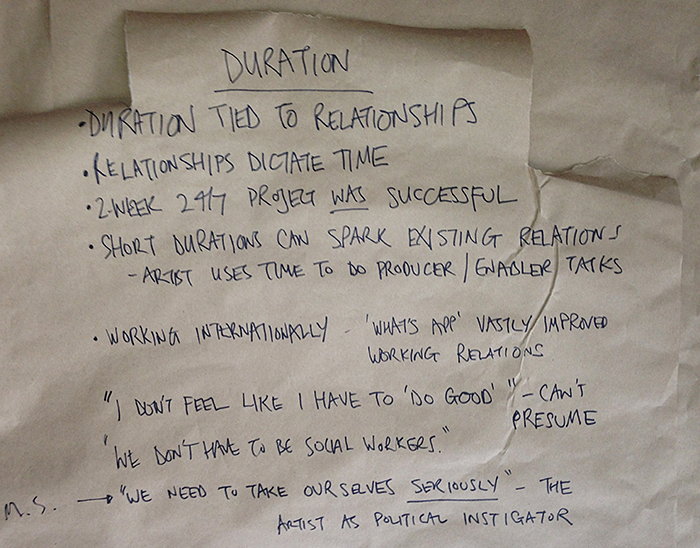 DURATION
• DURATION TIED TO RELATIONSHIPS
• RELATIONSHIPS DICTATE TIME
• 2-WEEK 24/7 PROJECT WAS SUCCESSFUL
• SHORT DURATIONS CAN SPARK EXISTING RELATIONS
- ARTIST USES TIME TO DO PRODUCER / ENABLER TALKS
• WORKING INTERNATIONALLY - 'WHAT'S APP' VASTLY IMPROVED
WORKING RELATIONS
"I DON'T FEEL LIKE I HAVE TO 'DO GOOD'" - CAN'T
PRESUME
"WE DON'T HAVE TO BE SOCIAL WORKERS."
M.S. → "WE NEED TO TAKE OURSELVES SERIOUSLY" - THE
ARTIST AS POLITICAL INSTIGATOR